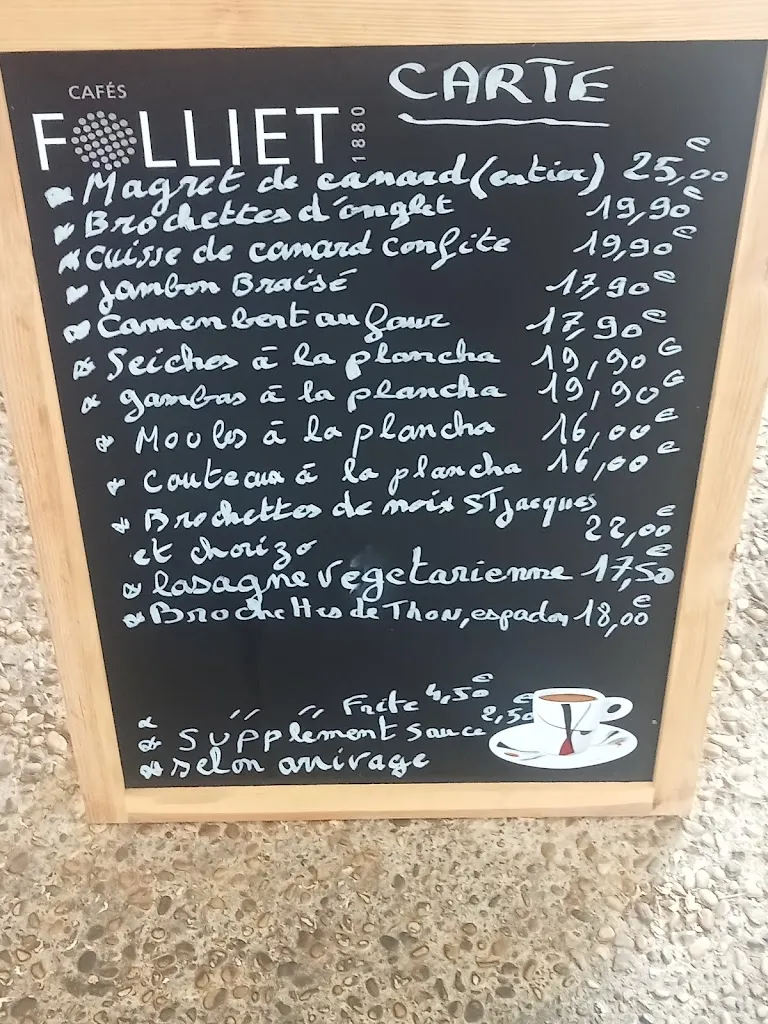 CAFÉS
FOLLIET 1880
CARTE
Magret de canard (entier) 25,00€
Brochettes d'onglet 19,90€
Cuisse de canard confite 19,90€
Jambon Braisé 17,90€
Camembert au four 17,90€
Seiches à la plancha 19,90€
gambas à la plancha 19,90€
Moules à la plancha 16,00€
Couteaux à la plancha 16,00€
Brochettes de noix ST jacques
22,00€
et chorizo
lasagne végétarienne 17,50€
Brochettes de Thon, espadon 18,00€
" " Frite 4,50€
Supplément sauce 2,50€
selon arrivage